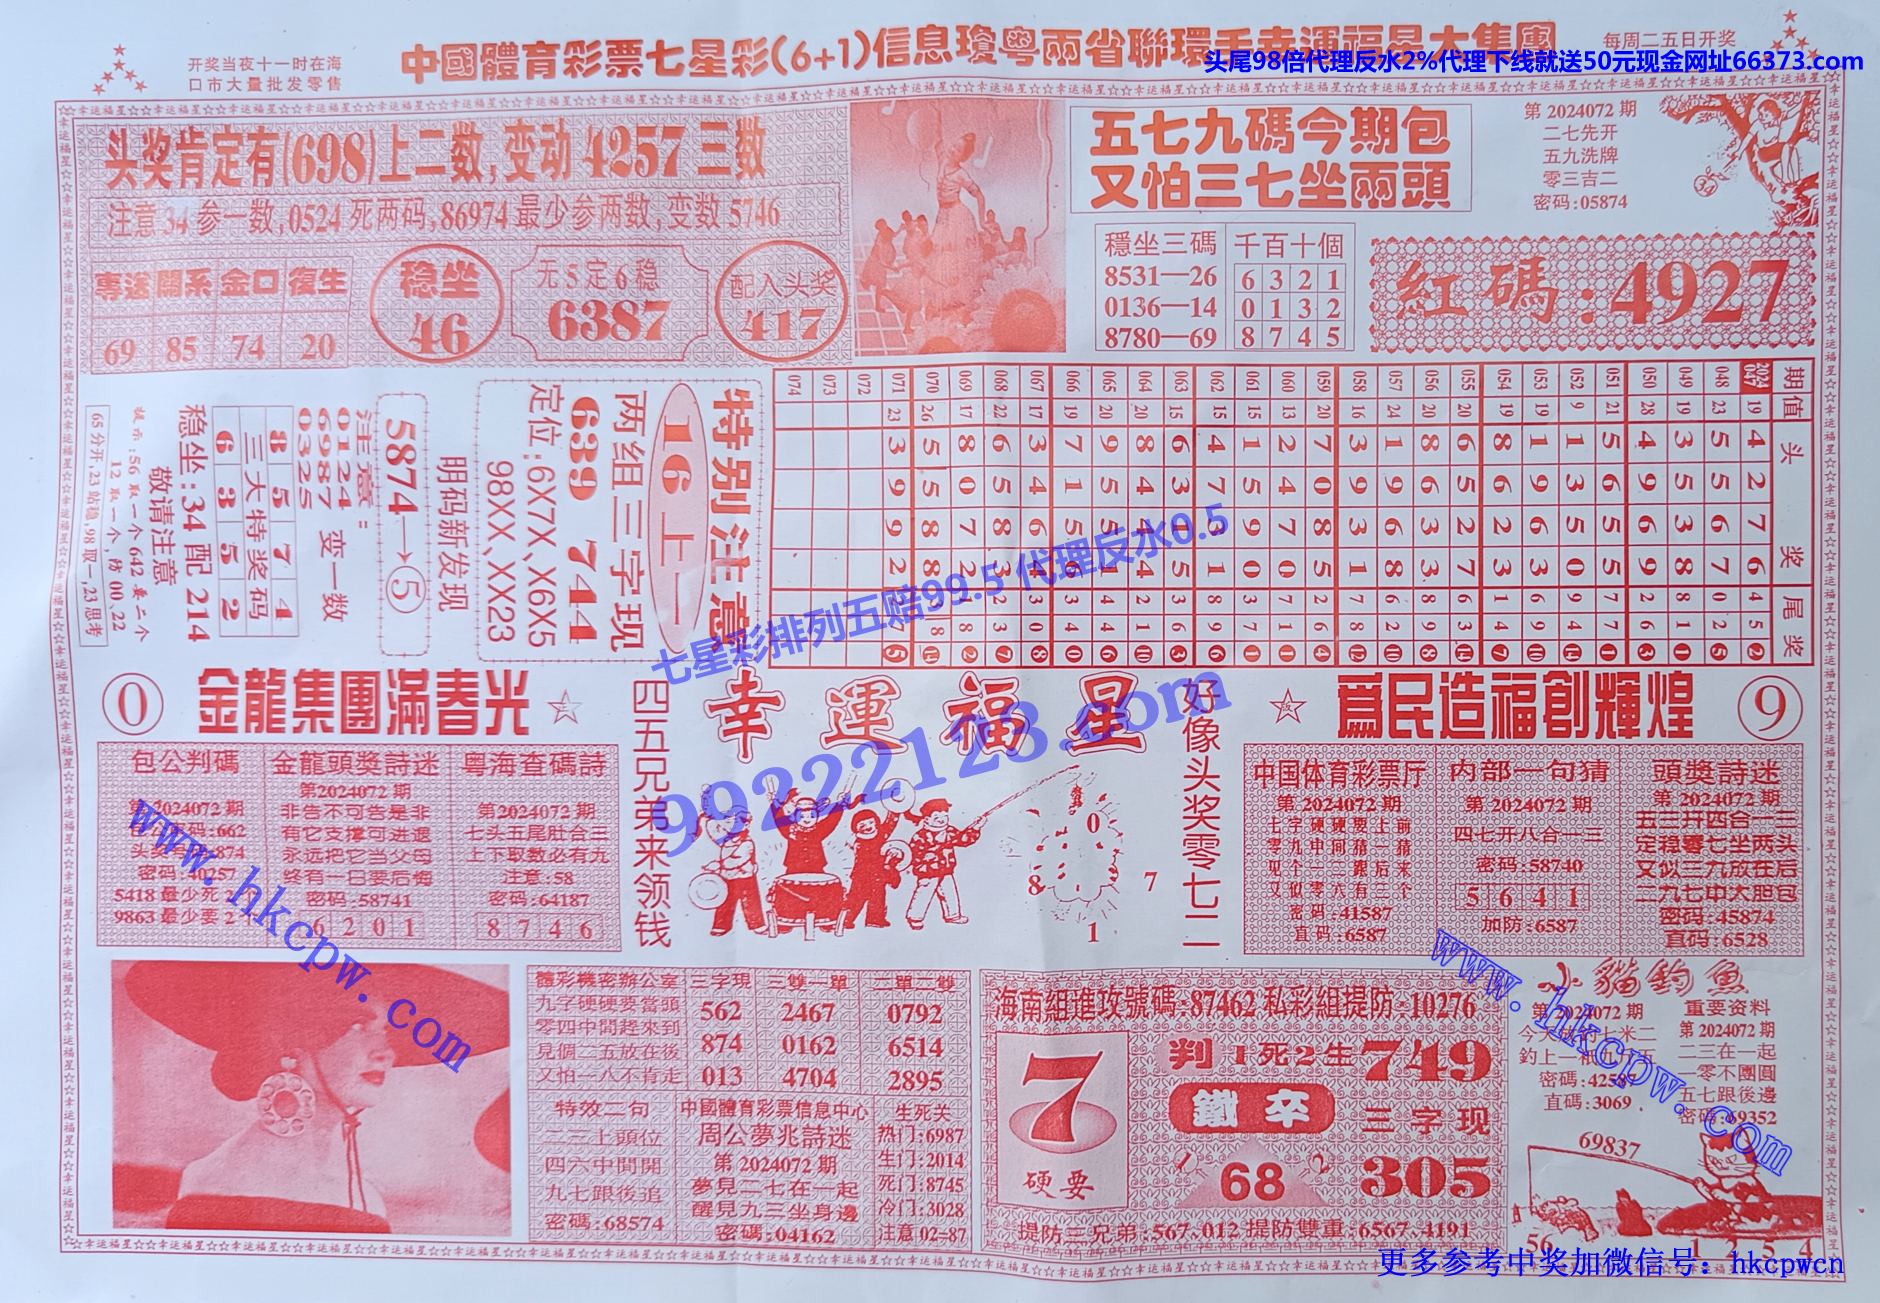 开奖当夜十一时在海
口市大量批发零售
中國體育彩票七星彩(6+1)信息瓊粤兩省聯環千幸運福星大集團
每周二五日开奖
头尾98倍代理反水2%代理下线就送50元现金网址66373.com
头奖肯定有(698)上二数,变动4257三数
注意34参一数,0524死两码,86974最少参两数,变数5746
專送 關系 金口 復生
69 85 74 20
稳坐
46
无5定6稳
6387
配入头奖
417
五七九碼今期包
又怕三七坐兩頭
穩坐三碼
8531—26
0136—14
8780—69
千百十個
6 3 2 1
0 1 3 2
8 7 4 5
第2024072期
二七先开
五九洗牌
零三吉二
密码:05874
34
紅碼:4927
特别注意
16上一
两组三字现
639 744
定位:6X7X、X6X5
98XX、XX23
明码新发现
5874→5
注意:
0124
6987
0325
变一数
8 5 7 4
三大特奖码
6 3 5 2
稳坐:34配214
敬请注意
提示:56取一个642要二个
12取一个,防00、22
65分开,23站稳,98取一,23思考
期 值 头 奖 尾 奖
2024
047 19 4 2 7 6 4 5 2
048 23 5 5 6 7 0 2 5
049 19 3 5 3 8 8 1 1
050 28 4 9 6 9 2 6 3
051 21 5 6 5 5 7 7 1
052 9 1 3 5 0 9 4
053 19 1 9 6 3 6 9
054 19 8 6 2 3 1 4 7
055 20 6 5 2 7 9 3
056 20 8 6 3 3 8 9
057 24 1 9 6 8 6 2
058 16 3 9 3 1 7 8
059 20 7 0 8 5 2 6 4
060 13 2 4 7 0 1 1
061 15 1 5 9 0 3 7 1
062 15 4 7 3 1 8 9 6
063 15 6 3 1 5 3 6
064 20 8 4 4 4 2 1
065 20 9 5 5 1 1 4
066 19 7 1 5 6 3 4
067 17 3 4 6 4 3 0 8
068 22 6 5 8 3 2 3 7
069 17 8 0 7 2 1 8 2
070 26 5 5 8 8
071 23 3 9 9 2 7 5
072
073
074
七星彩排列五赔99.5 代理反水0.5
99222128.com
0 金龍集團滿春光
正
四五兄弟来领钱
幸運福星
好像头奖零七二
版
爲民造福創輝煌 9
包公判碼
第2024072期
码:662
头奖 874
密码:40257
5418最少死
9863最少要2个
金龍頭獎詩迷
第2024072期
非告不可告是非
有它支撑可进退
永远把它当父母
终有一日要后悔
密码:58741
6 2 0 1
粤海查碼詩
第2024072期
七头五尾肚合三
上下取数必有九
注意:58
密码:64187
8 7 4 6
0
8
7
1
中国体育彩票厅
第2024072期
七字硬硬要上前
零九中间猜一猜
见个一二跟后来
又似零六有三个
密码:41587
直码:6587
内部一句猜
第2024072期
四七开八合一三
密码:58740
5 6 4 1
加防:6587
頭獎詩迷
第2024072期
五三开四合一三
定稳零七坐两头
又似三九放在后
二九七中大胆包
密码:45874
直码:6528
www.hkcpw.com
體彩機密辦公室
九字硬硬要當頭
零四中間趕來到
見個二五放在後
又怕一八不肯走
三字現
562
874
013
三雙一單
2467
0162
4704
二單二雙
0792
6514
2895
特效二句
二三上頭位
四六中間開
九七跟後追
密碼:68574
中國體育彩票信息中心
周公夢兆詩迷
第2024072期
夢見二七在一起
醒見九三坐身邊
密碼:04162
生死关
热门:6987
生门:2014
死门:8745
冷门:3028
注意02—87
海南組進攻號碼:87462私彩組提防:10276
7
硬要
判1死2生749
鐵卒
1 68 2
三字现
305
提防三兄弟:567、012提防雙重:6567、4191
小貓釣魚
第2024072期
釣上一祇九
密碼:42587
直碼:3069
重要资料
第2024072期
二三在一起
一零不團圓
五七跟後邊
密码:69352
www.hkcpw.com
69837
56
1 2 5 4
更多参考中奖加微信号：hkcpwcn